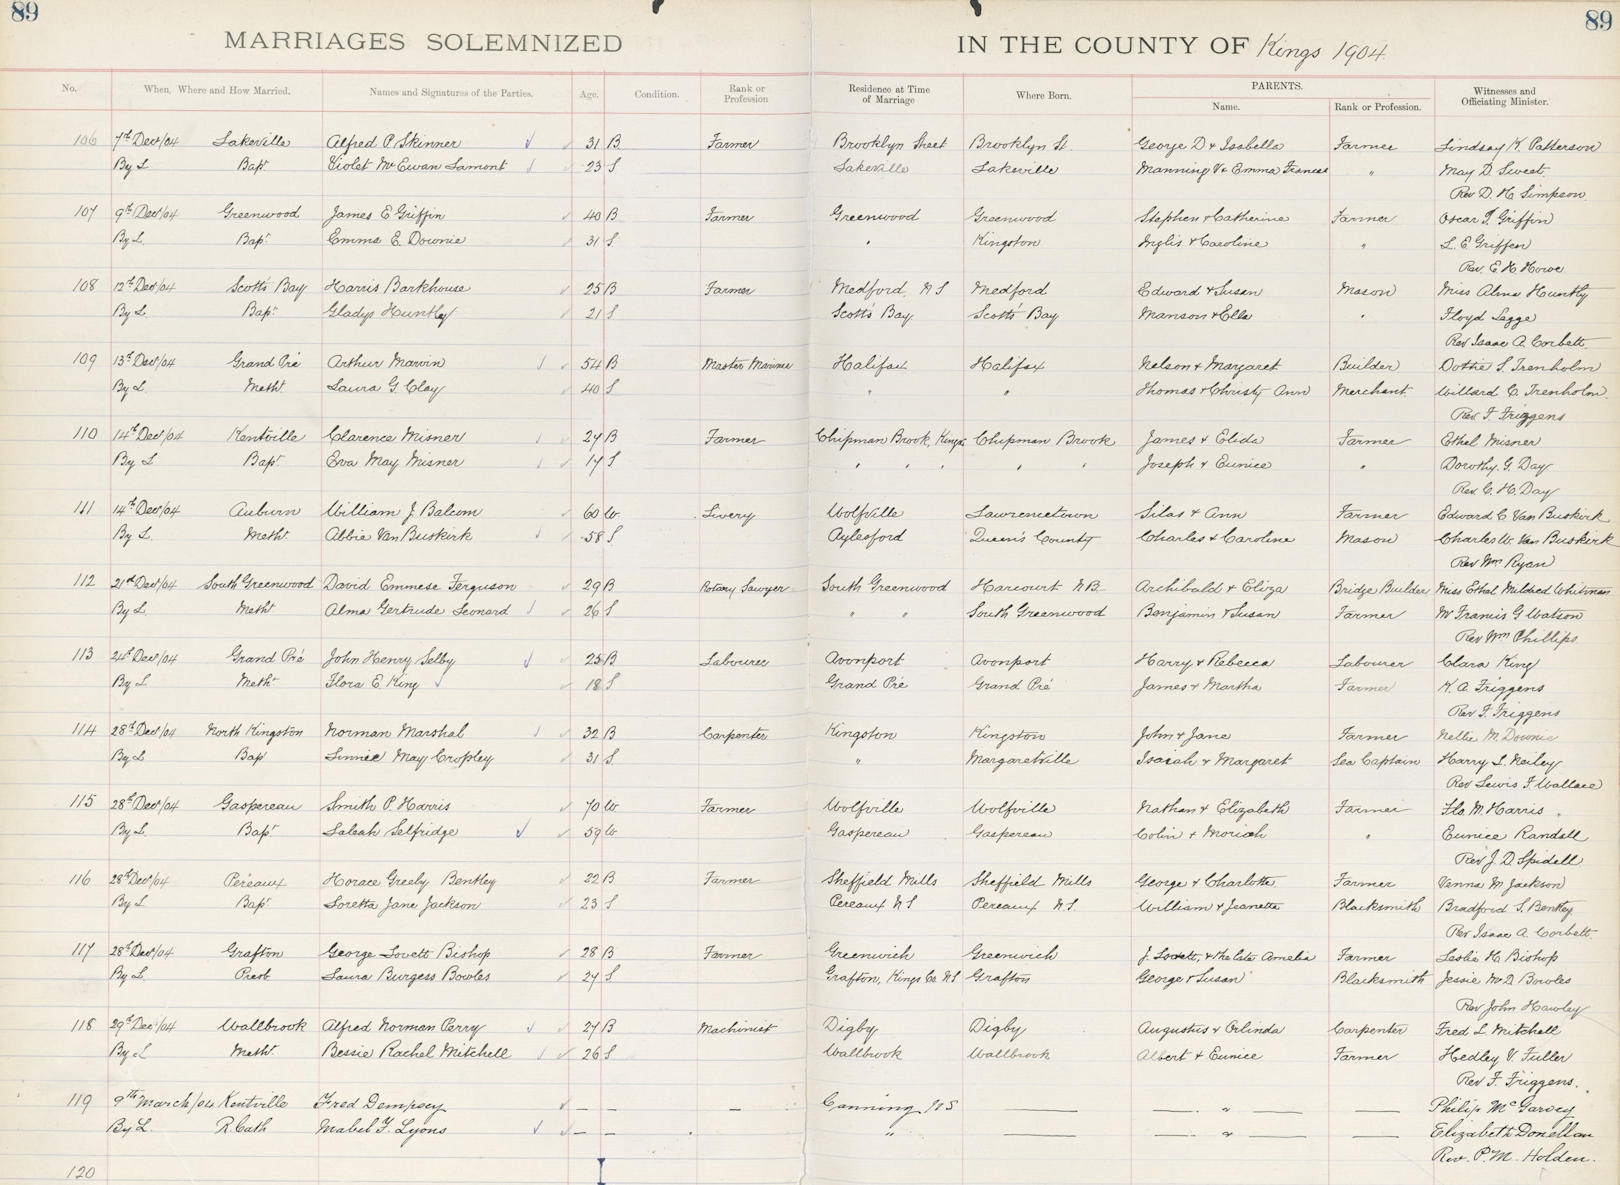 89 89
MARRIAGES SOLEMNIZED IN THE COUNTY OF Kings 1904.
No. When, Where and How Married. Names and Signatures of the Parties. Age. Condition. Rank or Profession Residence at Time of Marriage Where Born. PARENTS. Name. Rank or Profession. Witnesses and Officiating Minister.
106 7th Dec/04 Lakeville Alfred P. Skinner 31 B Farmer Brooklyn Street Brooklyn St. George D & Isabella Farmer Lindsay K. Patterson
By L Bapt. Violet McEwan Lamont 23 S Lakeville Lakeville Manning V & Emma Frances " May D. Sweet.
Rev D. H. Simpson.
107 9th Dec/04 Greenwood James E Griffin 40 B Farmer Greenwood Greenwood Stephen & Catherine Farmer Oscar Griffin
By L. Bapt. Emma E. Downie 31 S " Kingston Inglis & Caroline " L. E Griffin
Rev. E H Howe
108 12th Dec/04 Scott's Bay Harris Barkhouse 25 B Farmer Medford, N S Medford Edward & Susan Mason Miss Alma Huntly
By L. Bapt. Gladys Huntley 21 S Scott's Bay Scott's Bay Manson & Ella " Floyd Legge
Rev Isaac A Corbett.
109 13th Dec/04 Grand Pré Arthur Marvin 54 B Master Mariner Halifax Halifax Nelson & Margaret Builder Dottie S. Trenholm
By L. Meth. Laura G. Clay 40 S " " Thomas & Christy Ann Merchant. Willard C. Trenholm.
Rev. F. Friggens
110 14th Dec/04 Kentville Clarence Misner 27 B Farmer Chipman Brook, Kings Chipman Brook James & Elida Farmer Ethel Misner
By L Bapt. Eva May Misner 17 S " " " " " Joseph & Eunice " Dorothy. G. Day
Rev. C. H. Day
111 14th Dec/04 Auburn William J. Balcom 60 W. Livery Wolfville Lawrencetown Silas & Ann Farmer Edward C Van Buskirk
By L. Meth. Abbie Van Buskirk 58 S Aylesford Queen's County Charles & Caroline Mason Charles W. Van Buskirk
Rev Wm Ryan
112 21st Dec/04 South Greenwood David Emmese Ferguson 29 B Rotary Sawyer South Greenwood Harcourt N B Archibald & Eliza Bridge Builder Miss Ethel Mildred Whitman
By L. Meth. Alma Gertrude Leonard 26 S " " South Greenwood Benjamin & Susan Farmer Mr Francis G Watson
Rev Wm Phillips.
113 24th Dec/04 Grand Pré John Henry Selby 25 B Labourer Avonport Avonport Harry & Rebecca Labourer Clara King
By L Meth. Flora E. King 18 S Grand Pré Grand Pré James & Martha Farmer K. A. Friggens
Rev F. Friggens
114 28th Dec/04 North Kingston Norman Marshal 32 B Carpenter Kingston Kingston John & Jane Farmer Nellie M. Downie
By L Bap Linnie May Cropley 31 S. " Margaretville Isaiah & Margaret Sea Captain Harry L. Neiley
Rev Lewis F Wallace
115 28th Dec/04 Gaspereau Smith P. Harris 70 W Farmer Wolfville Wolfville Nathan & Elizabeth Farmer Flo. M. Harris.
By L. Bapt. Saleah Selfridge 59 W Gaspereau Gaspereau Colin & Moriah " Eunice Randall
Rev J. D. Spidell
116 28th Dec/04 Pereaux Horace Greely Bentley 22 B Farmer Sheffield Mills Sheffield Mills George & Charlotte Farmer Venna M Jackson
By L Bapt. Loretta Jane Jackson 23 S Pereaux N S Pereaux N. S. William & Jeanetta Blacksmith Bradford S. Bentley
Rev Isaac A. Corbett.
117 28th Dec/04 Grafton George Lovett Bishop 28 B Farmer Greenwich Greenwich J. Lovett, & the late Amelia Farmer Leslie H. Bishop
By L. Presb. Laura Burgess Bowles 27 S Grafton, Kings Co. N S Grafton George & Susan Blacksmith Jessie McD Bowles
Rev John Hawley
118 29th Dec/04 Wallbrook Alfred Norman Perry 27 B Machinist Digby Digby Augustus & Orlinda Carpenter Fred L. Mitchell
By L Meth. Bessie Rachel Mitchell 26 S Wallbrook Wallbrook Albert & Eunice Farmer Hedley V. Fuller
Rev F. Friggens.
119 9th March/04 Kentville Fred Dempsey — — — Canning N S — — " — — Philip McGarvey
By L. R. Cath Mabel F. Lyons — — " — — " — — Elizabeth Donellan
Rev. P. M. Holden.
120